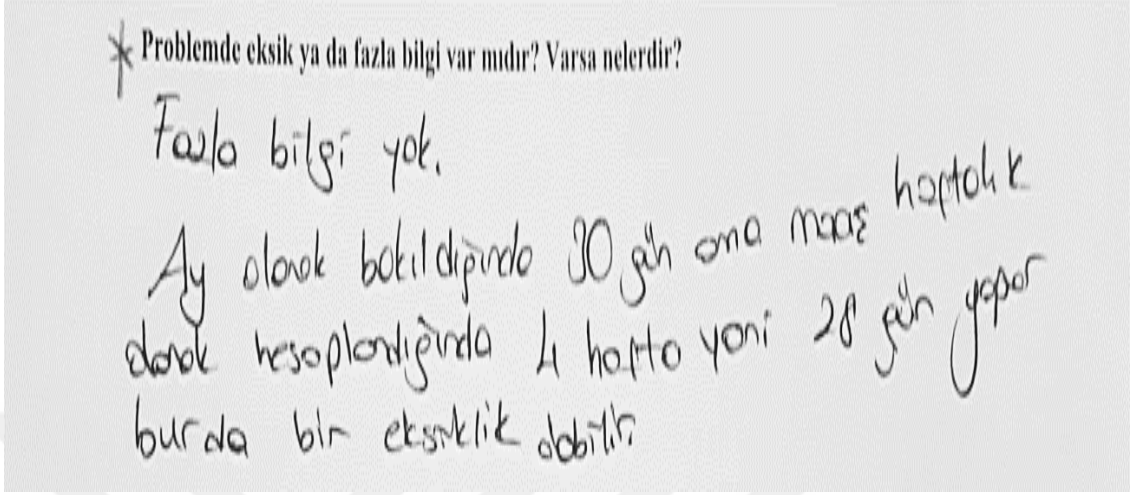 * Problemde eksik ya da fazla bilgi var mıdır? Varsa nelerdir?
Fazla bilgi yok.
Ay olarak bakıldığında 30 gün ama maaş haftalık
olarak hesaplandığında 4 hafta yani 28 gün yapar
burda bir eksiklik olabilir